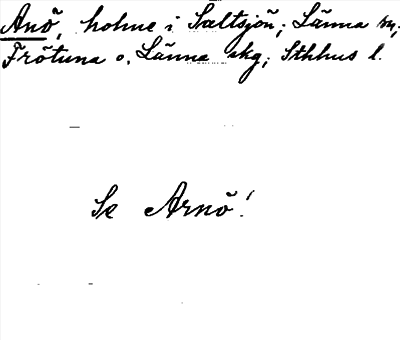 Anö, holme i Saltsjön; Länna sn;
Frötuna o. Länna skg; Sthhus l.
Se Arnö!